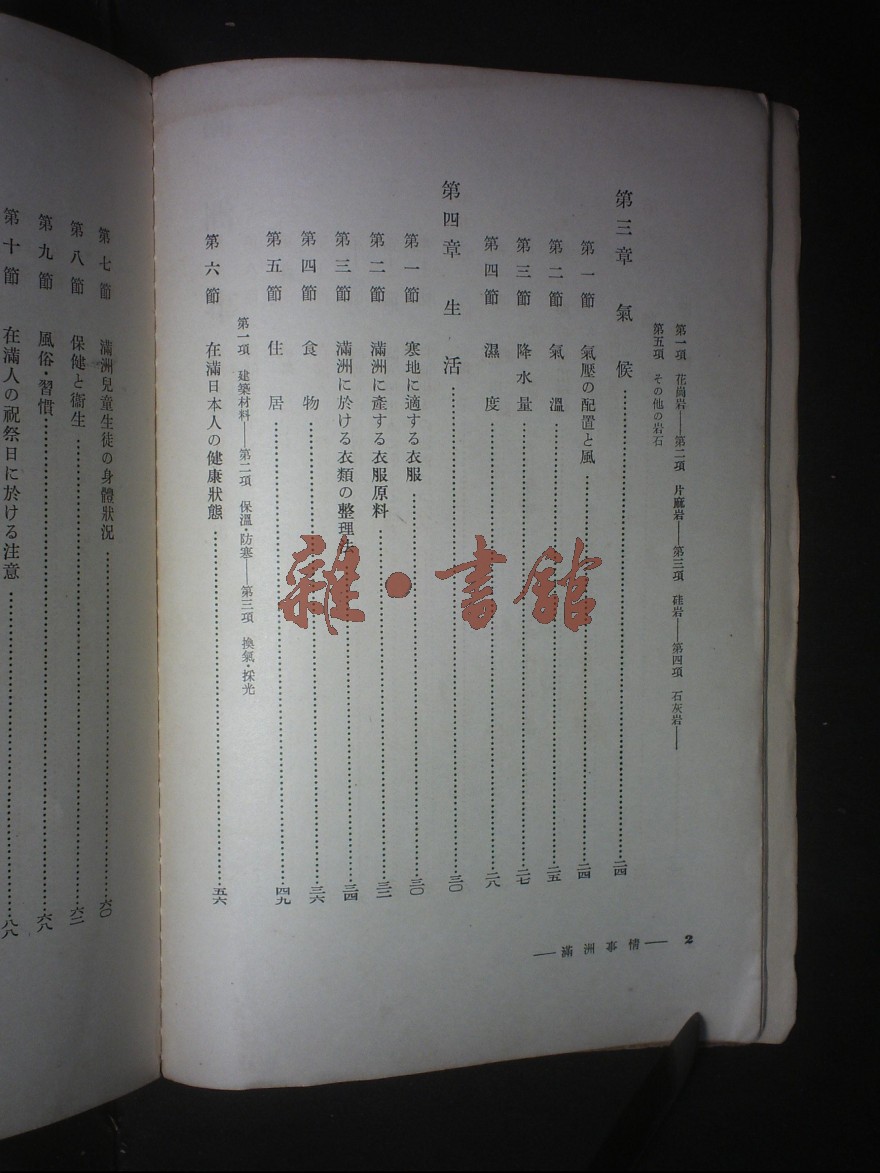 第一項 花崗岩――第二項 片麻岩――第三項 硅岩――第四項 石灰岩――
第五項 その他の岩石
第三章 氣候……二四
第一節 氣壓の配置と風……二四
第二節 氣溫……二五
第三節 降水量……二七
第四節 濕度……二八
第四章 生活……三〇
第一節 寒地に適する衣服……三〇
第二節 滿洲に產する衣服原料……三二
第三節 滿洲に於ける衣類の整理法……三四
第四節 食物……三六
第五節 住居……四九
第一項 建築材料――第二項 保溫・防寒――第三項 換氣・採光
第六節 在滿日本人の健康狀態……五六
―滿洲事情― 2
第七節 滿洲兒童生徒の身體狀況……六〇
第八節 保健と衞生……六二
第九節 風俗・習慣……六八
第十節 在滿人の祝祭日に於ける注意……八八
雜・書館